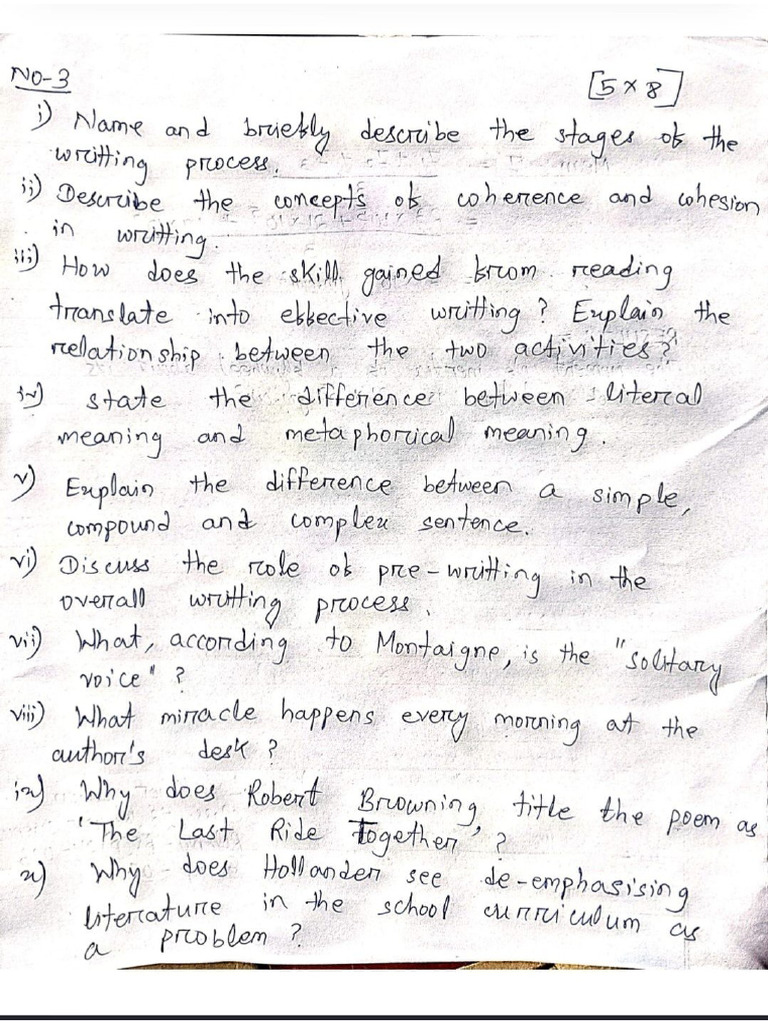 NO-3 [5 × 8]
i) Name and briefly describe the stages of the
writting process.
ii) Describe the concepts of coherence and cohesion
in writting.
iii) How does the skill gained from reading
translate into effective writting? Explain the
relationship between the two activities?
iv) State the difference between literal
meaning and metaphorical meaning.
v) Explain the difference between a simple,
compound and complex sentence.
vi) Discuss the role of pre-writting in the
overall writting process.
vii) What, according to Montaigne, is the "solitary
voice"?
viii) What miracle happens every morning at the
author's desk?
ix) Why does Robert Browning title the poem as
'The Last Ride Together'?
x) Why does Hollander see de-emphasising
literature in the school curriculum as
a problem?